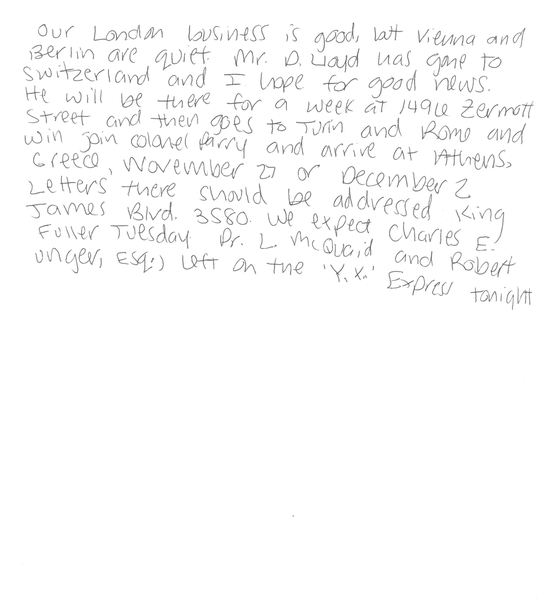 Our London business is good, but Vienna and
Berlin are quiet. Mr. D. Lloyd has gone to
Switzerland and I hope for good news.
He will be there for a week at 1496 Zermott
Street and then goes to Turin and Rome and
will join colonel Parry and arrive at Athens,
Greece, November 27 or December 2
Letters there should be addressed King
James Blvd. 3580. We expect Charles E.
Fuller Tuesday. Dr. L. McQuaid and Robert
Unger, Esq., left on the 'Y.X.' Express tonight